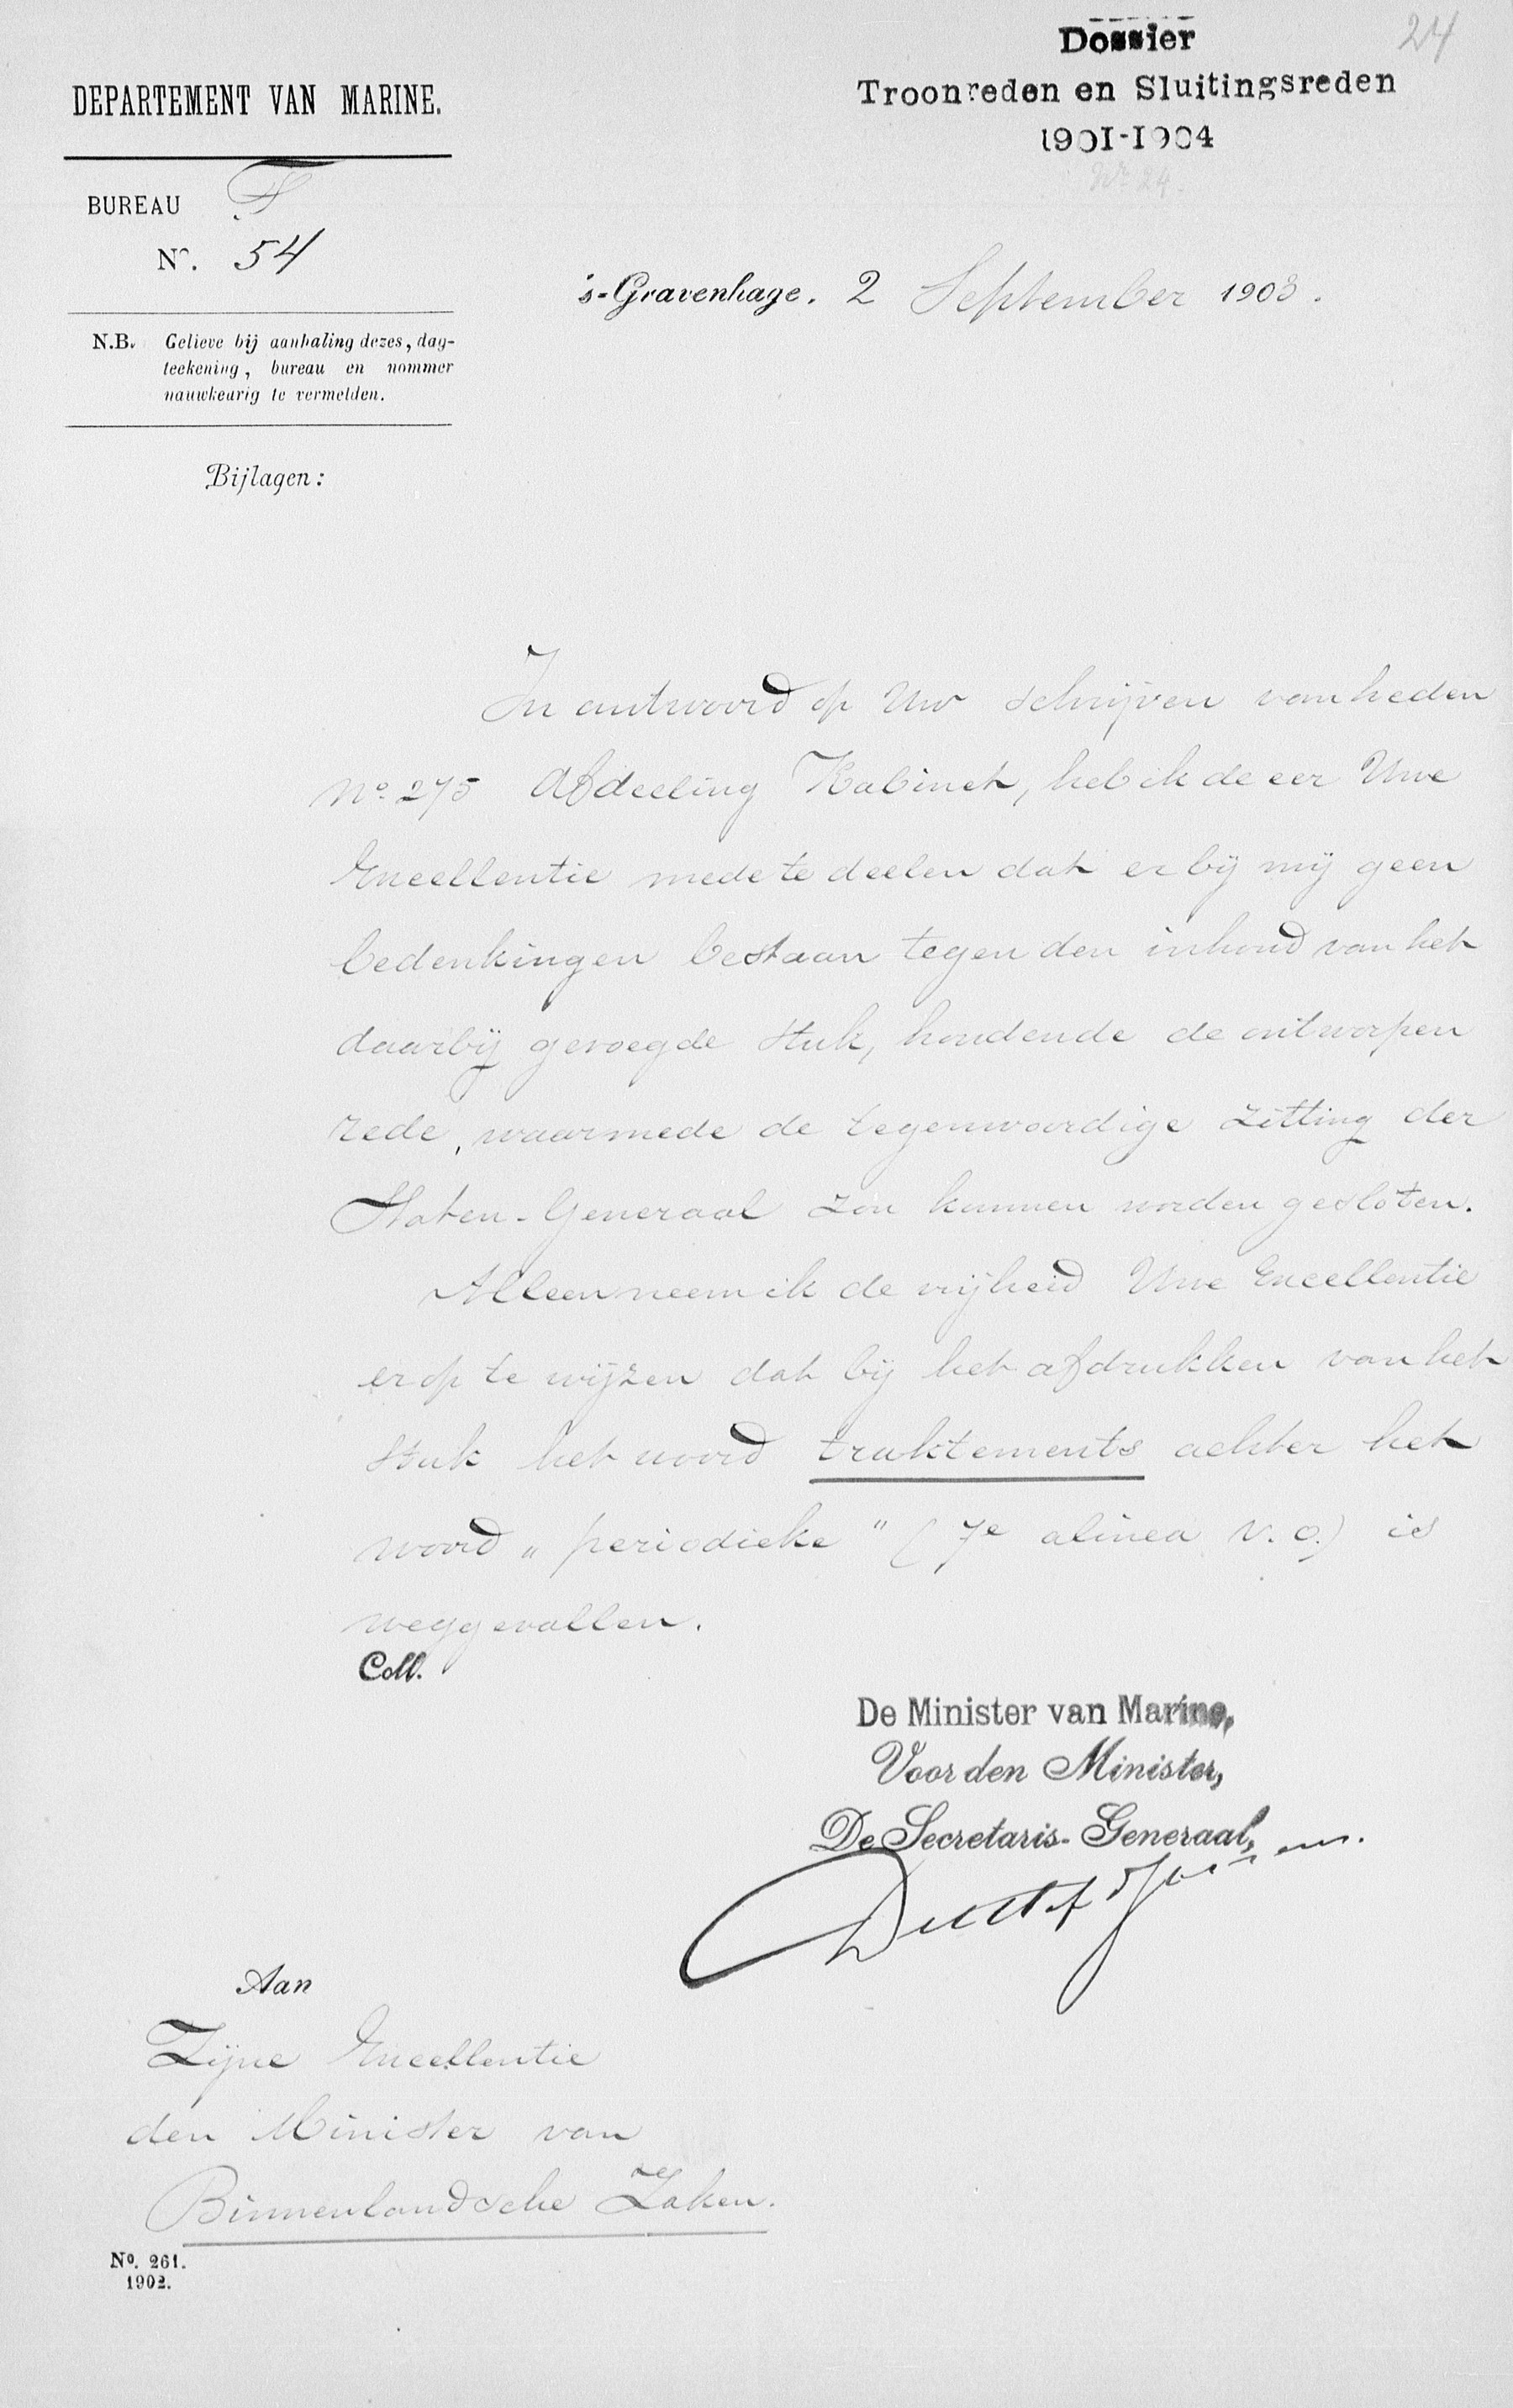 24
Dossier
Troonreden en Sluitingsreden
1901-1904
No 24.
DEPARTEMENT VAN MARINE.
BUREAU F
No. 54
's-Gravenhage, 2 September 1903.
N.B. Gelieve bij aanhaling dezes, dag-
teekening, bureau en nommer
nauwkeurig te vermelden.
Bijlagen:
In antwoord op Uw schrijven van heden
No. 275 Afdeeling Kabinet, heb ik de eer Uwe
Excellentie mede te deelen dat er bij mij geen
bedenkingen bestaan tegen den inhoud van het
daarbij gevoegde stuk, houdende de ontworpen
rede, waarmede de tegenwoordige zitting der
Staten-Generaal zou kunnen worden gesloten.
Alleen neem ik de vrijheid Uwe Excellentie
er op te wijzen dat bij het afdrukken van het
stuk het woord traktements achter het
woord „periodieke" (7e alinea v.o.) is
weggevallen.
Coll.
De Minister van Marine,
Voor den Minister,
De Secretaris-Generaal,
Aan
Zijne Excellentie
den Minister van
Binnenlandsche Zaken.
No. 261.
1902.